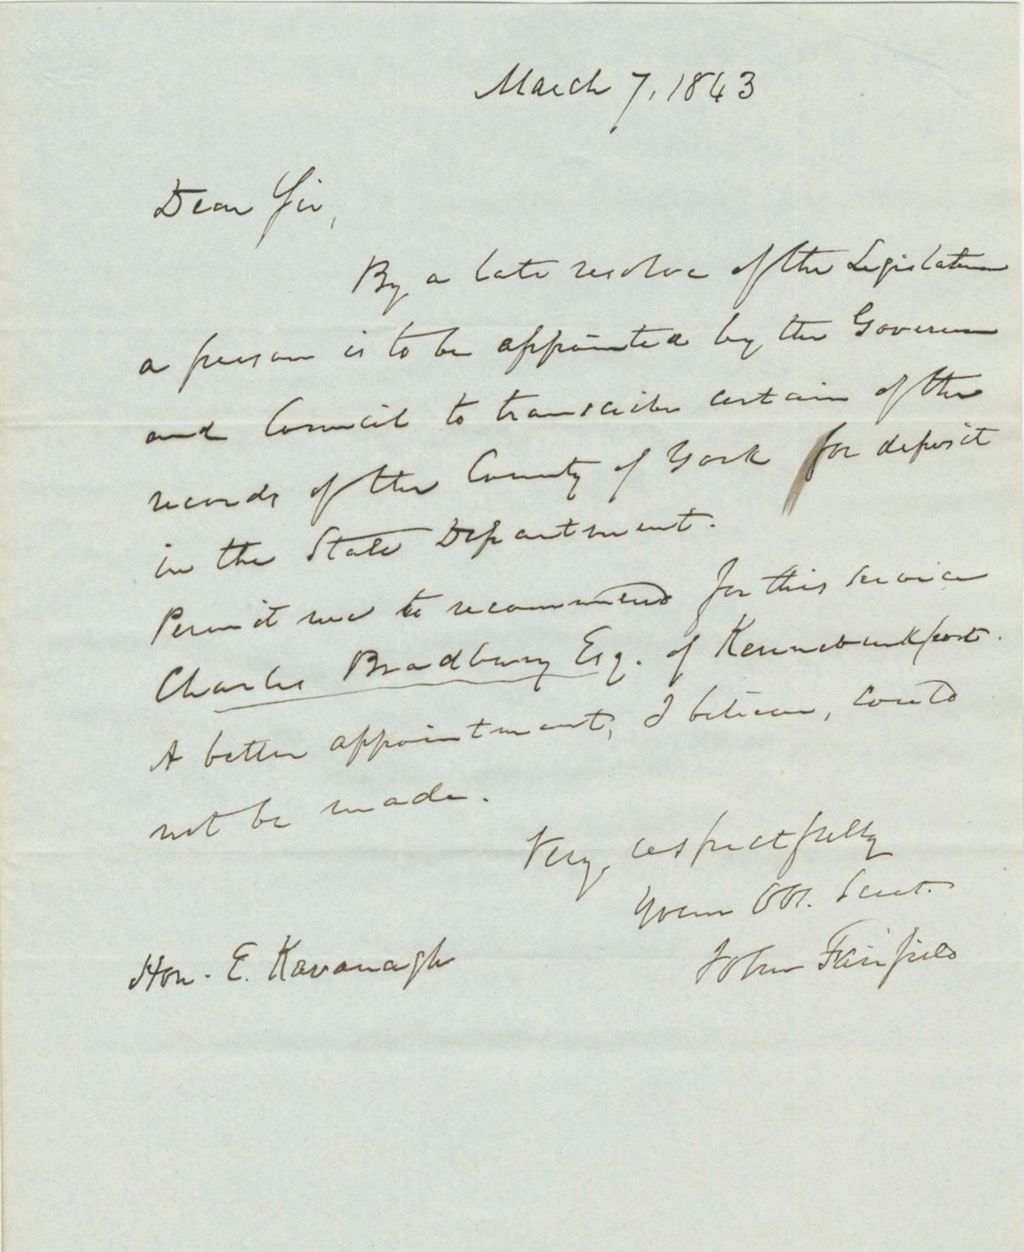 March 7, 1843
Dear Sir,
By a late resolve of the Legislature
a person is to be appointed by the Governor
and Council to transcribe certain of the
records of the County of York for deposit
in the State Department.
Permit me to recommend for this service
Charles Bradbury Esq. of Kennebunkport.
A better appointment, I believe, could
not be made.
Very, respectfully
Your Obt. Servt.
John Fairfield
Hon. E. Kavanagh